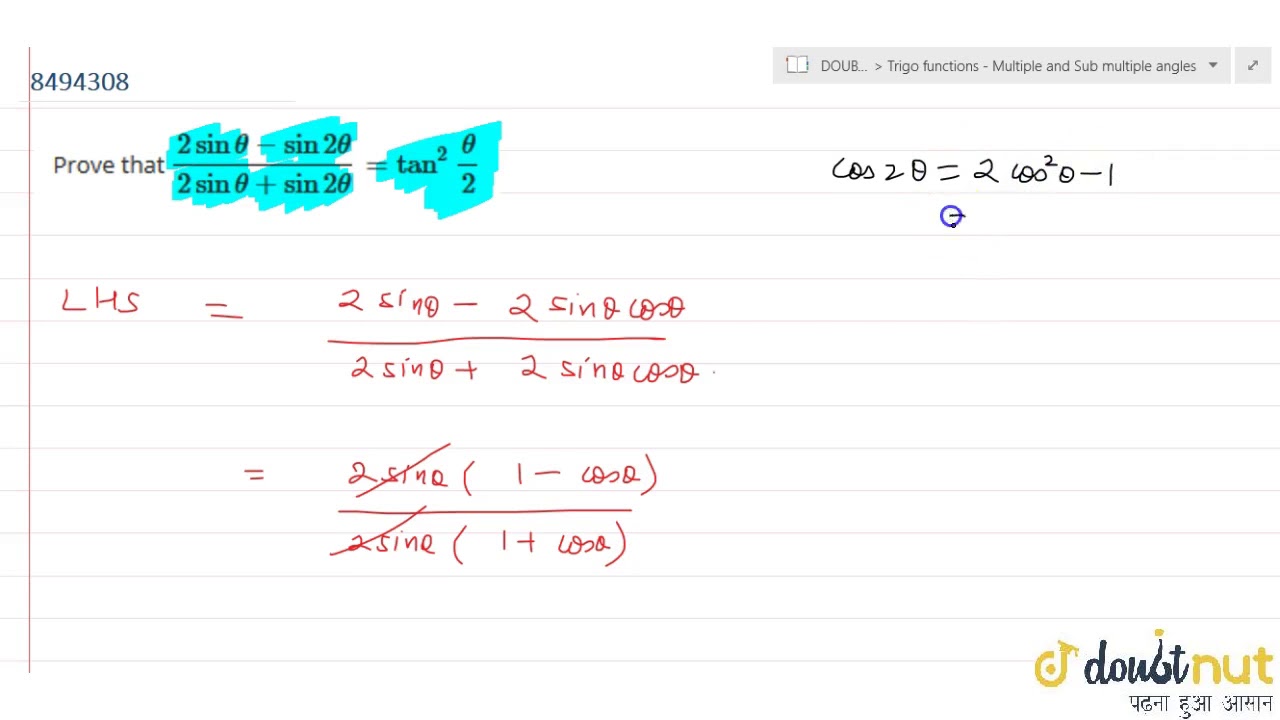 8494308
DOUB... > Trigo functions - Multiple and Sub multiple angles
Prove that (2 sin θ − sin 2θ)/(2 sin θ + sin 2θ) = tan² θ/2
cos 2θ = 2 cos²θ − 1
=
LHS = 2 sinθ − 2 sinθ cosθ
2 sinθ + 2 sinθ cosθ
= 2 sinθ ( 1 − cosθ)
2 sinθ ( 1 + cosθ)
doubtnut
पढ़ना हुआ आसान